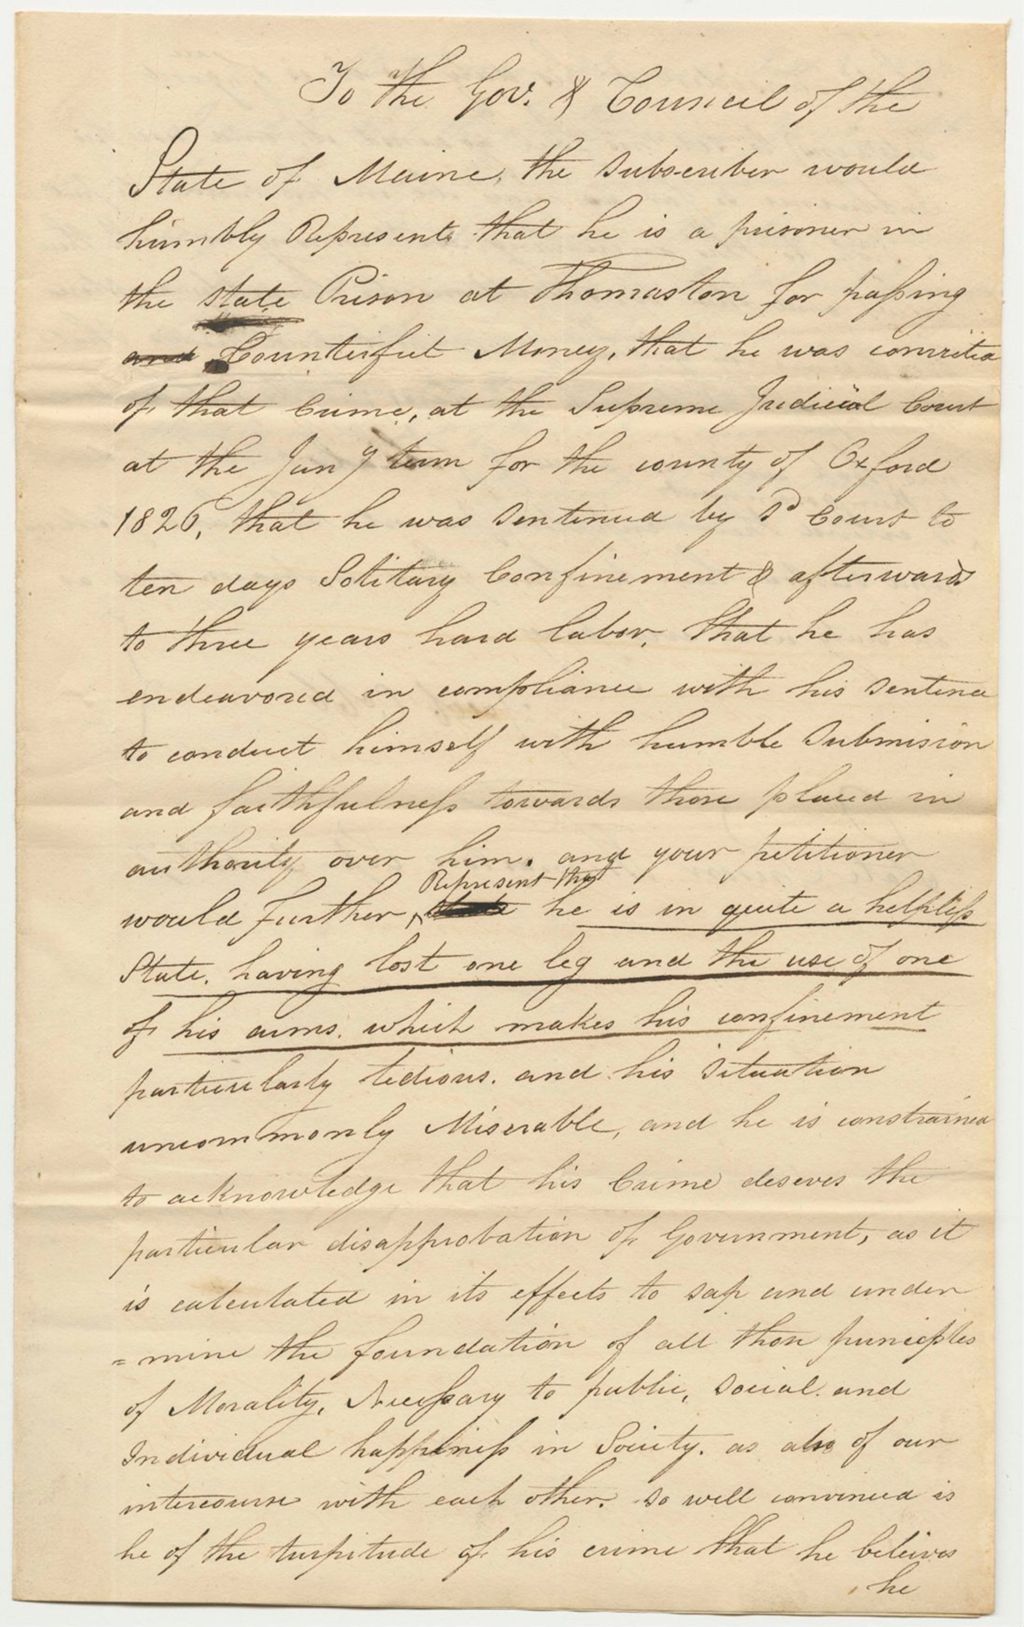 To the Gov. & Council of the
State of Maine, the subscriber would
humbly Represents that he is a prisoner in
the state Prison at Thomaston for passing
and Counterfeit Money, that he was convicted
of that Crime, at the Supreme Judicial Court
at the term for the county of Oxford
1826, that he was sentenced by sd Court to
ten days Solitary Confinement & afterwards
to three years hard labor, that he has
endeavored in compliance with his sentence
to conduct himself with humble submision
and faithfulness towards those placed in
authority over him. and your petitioner
would further, Represent that he is in quite a helpless
State, having lost one leg and the use of one
of his arms. which makes his confinement
particularly tedious. and his situation
uncommonly Miserable, and he is constrained
to acknowledge that his Crime deseves the
particular disapprobation of Government, as it
is calculated in its effects to sap and under
=mine the foundation of all those principles
of Morality, Necessary to public, social and
Individual happiness in Society. as also of our
intercourse with each other. so well convinced is
he of the turpitude of his crime that he beleives
he